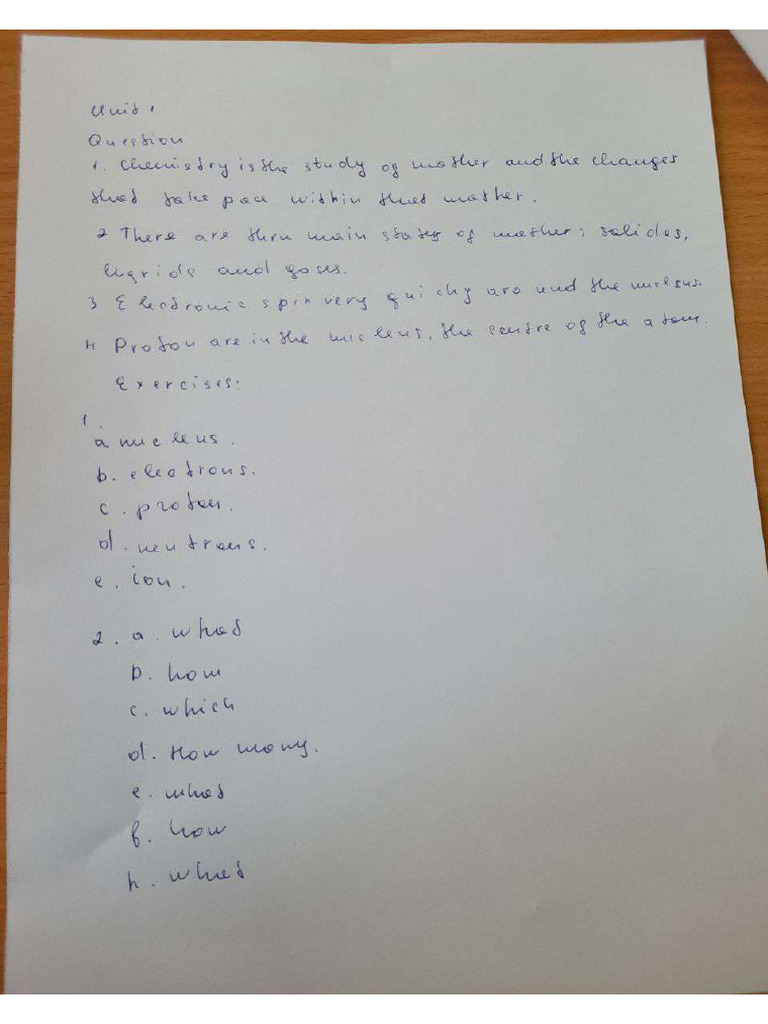 Unit 1
Question
1. Chemistry is the study of mather and the changes
that take pace within that mather.
2 There are thru main states of mather: solides,
liqrids and gases.
3 Electronic spin very quichy around the nucleus.
4 Proton are in the nucleus, the centre of the atom.
Exercises:
1.
a nucleus.
b. electrons.
c. proton.
d. neutrons.
e. ion.
2. a. what
b. how
c. which
d. How many.
e. what
f. how
h. what